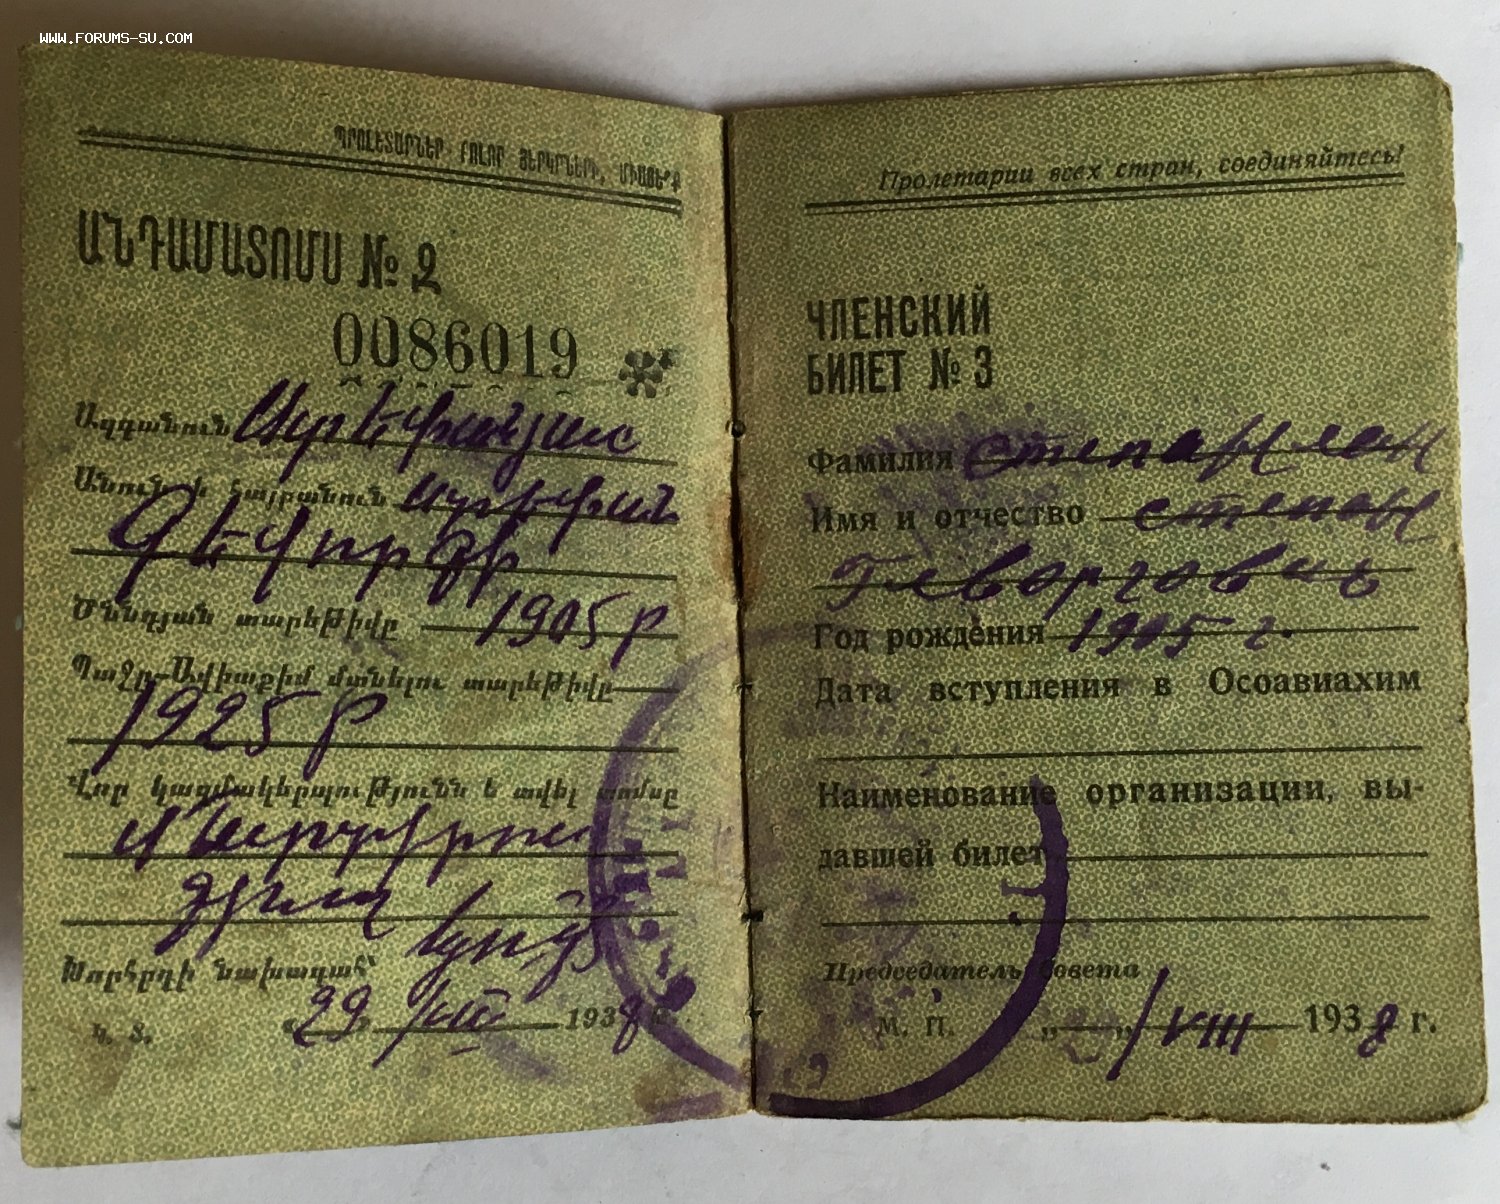 WWW.FORUMS-SU.COM
ՊՐՈԼԵՏԱՐՆԵՐ ԲՈԼՈՐ ՅԵՐԿՐՆԵՐԻ, ՄԻԱՑԵ՛Ք
ԱՆԴԱՄԱՏՈՄՍ № 2
0086019
Ազգանուն Ստեփանյան
Անուն և հայրանուն Ստեփան
Գեվորգի
Ծննդյան տարեթիվը 1905 թ
Պաշտ-Ավիաքիմ մտնելու տարեթիվը
1925 թ
Վոր կազմակերպությունն է տվել տոմսը
Խորհրդի նախագահ՝
Կ. Տ. «29» VIII 1938 թ.
Пролетарии всех стран, соединяйтесь!
ЧЛЕНСКИЙ
БИЛЕТ № 3
Фамилия Степанян
Имя и отчество Степан
Геворгович
Год рождения 1905 г.
Дата вступления в Осоавиахим
Наименование организации, вы-
давшей билет
Председатель совета
М. П. „ “ VIII 1938 г.